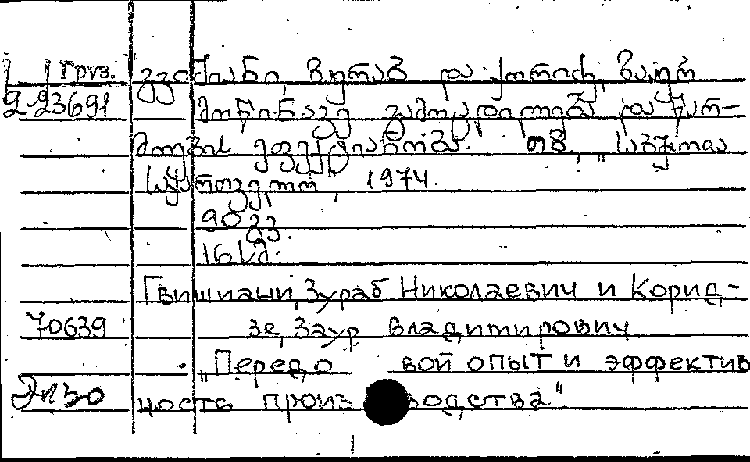 Груз. გვიშიანი, ზურაბ და ქორიძე, ზაურ
2 23691 მოწინავე გამოცდილება და წარ-
მოების ეფექტიანობა. თბ., „საბჭოთა
საქართველო", 1974.
90 გვ.
16 სმ.
Гвишиани, Зураб Николаевич и Корид-
70639 зе, Заур Владимирович
„Передо вой опыт и эффектив
ность произ водства"